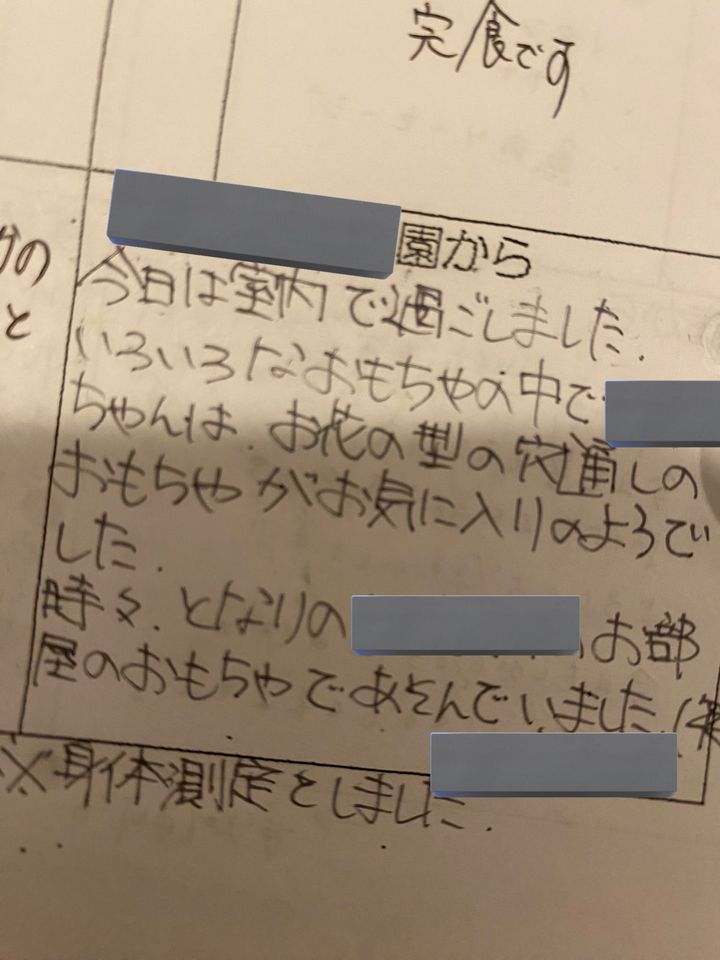 完食です
園から
今日は室内で過ごしました.
いろいろなおもちゃの中で
ちゃんは.お花の型の穴通しの
おもちゃがお気に入りのようで
した.
時々.となりの お部
屋のおもちゃであそんでいました.
※身体測定をしました.